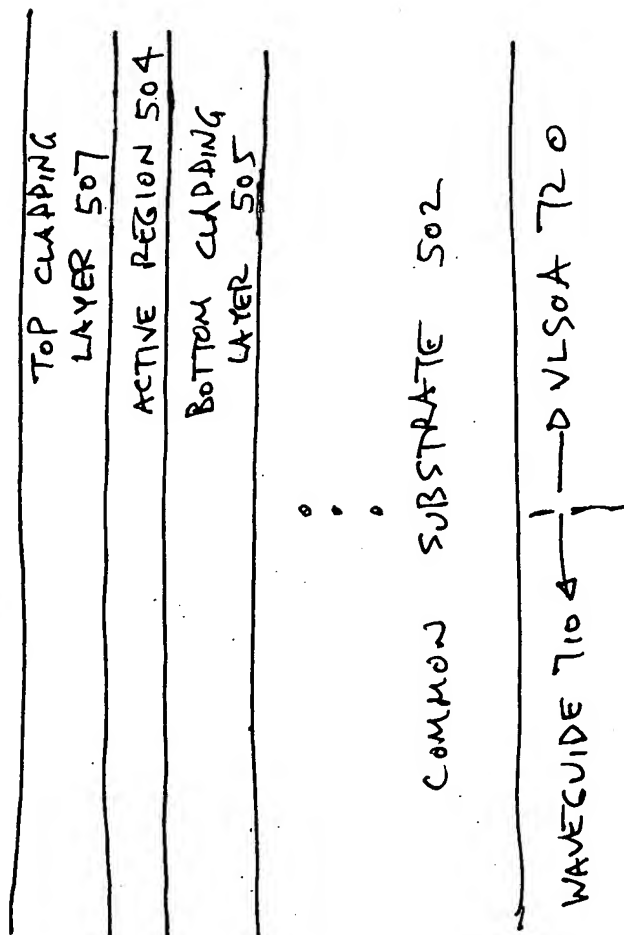 TOP CLADDING
LAYER 507
ACTIVE REGION 504
BOTTOM CLADDING
LAYER 505
COMMON SUBSTRATE 502
WAVEGUIDE 710
VLSOA 720